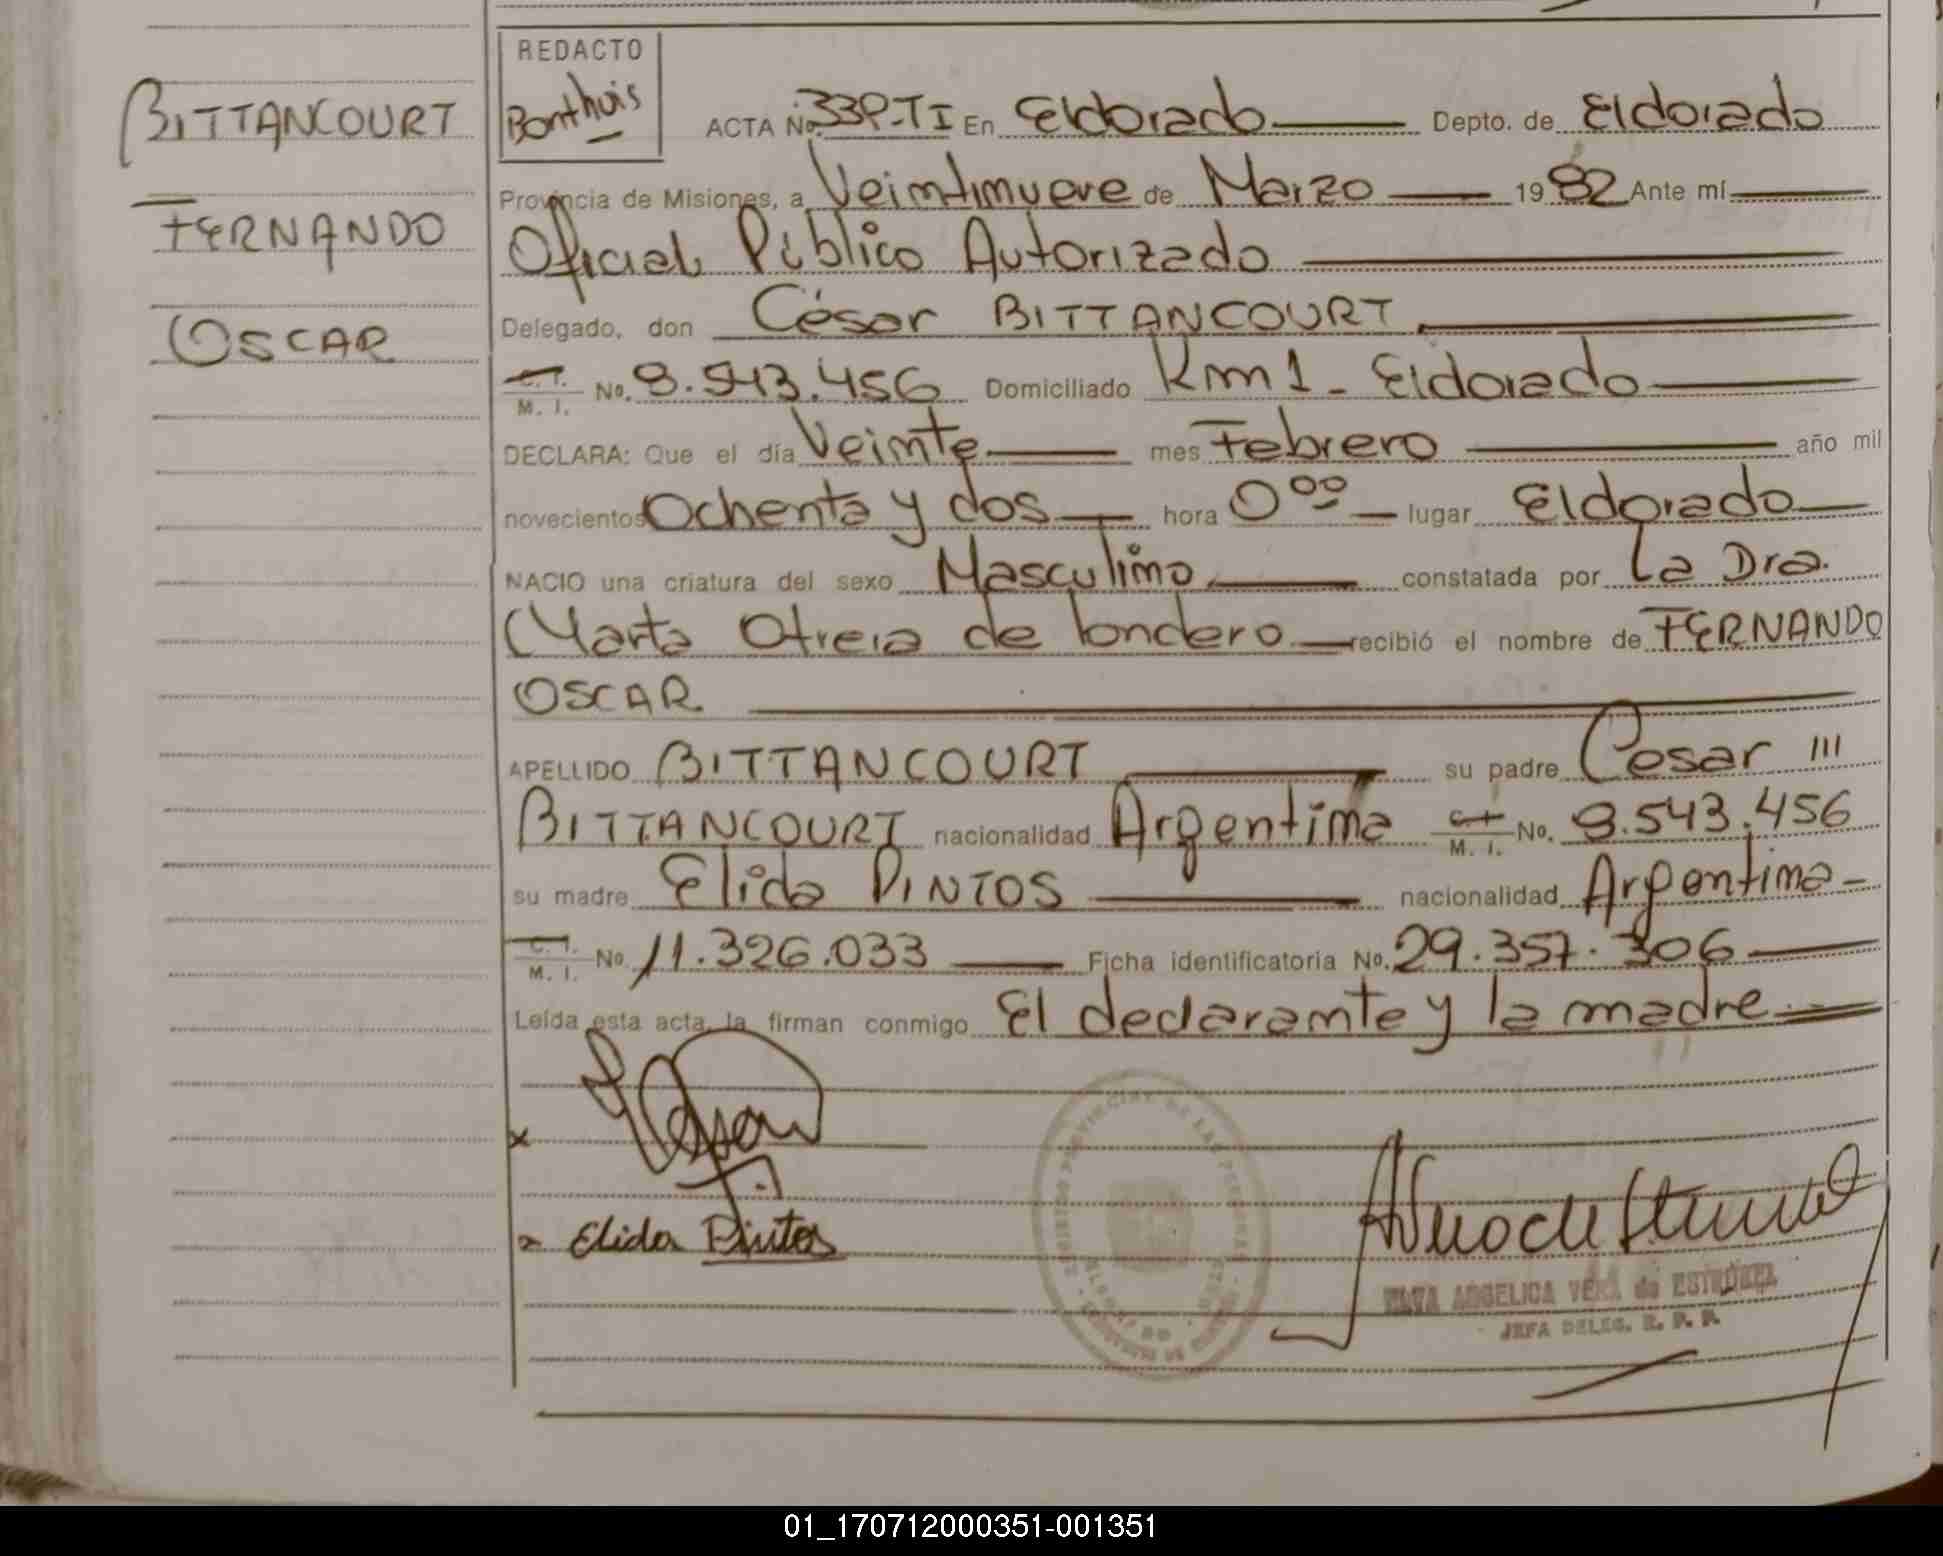 BITTANCOURT
FERNANDO
OSCAR
REDACTO
Bonthuis
ACTA No. 339-TI En Eldorado Depto. de Eldorado
Provincia de Misiones, a Veintinueve de Marzo 1982 Ante mí
Oficial Público Autorizado
Delegado, don César BITTANCOURT
C. I. M. I. No. 8.543.456 Domiciliado Km 1 - Eldorado
DECLARA: Que el día Veinte mes Febrero año mil
novecientos Ochenta y dos hora 0⁰⁰ lugar Eldorado
NACIO una criatura del sexo Masculino constatada por La Dra.
Marta de londero recibió el nombre de FERNANDO
OSCAR
APELLIDO BITTANCOURT su padre Cesar
BITTANCOURT nacionalidad Argentina M. I. No. 8.543.456
su madre Elida PINTOS nacionalidad Argentina
C. I. M. I. No. 11.326.033 Ficha identificatoria No. 29.357.306
Leída esta acta, la firman conmigo El declarante y la madre
x
Elida Pintos
ANGELICA VERA de
JEFA DELEG. R. P. P.
01_170712000351-001351